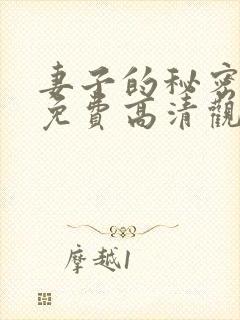 妻子的秘密
免費高清觀
摩越1